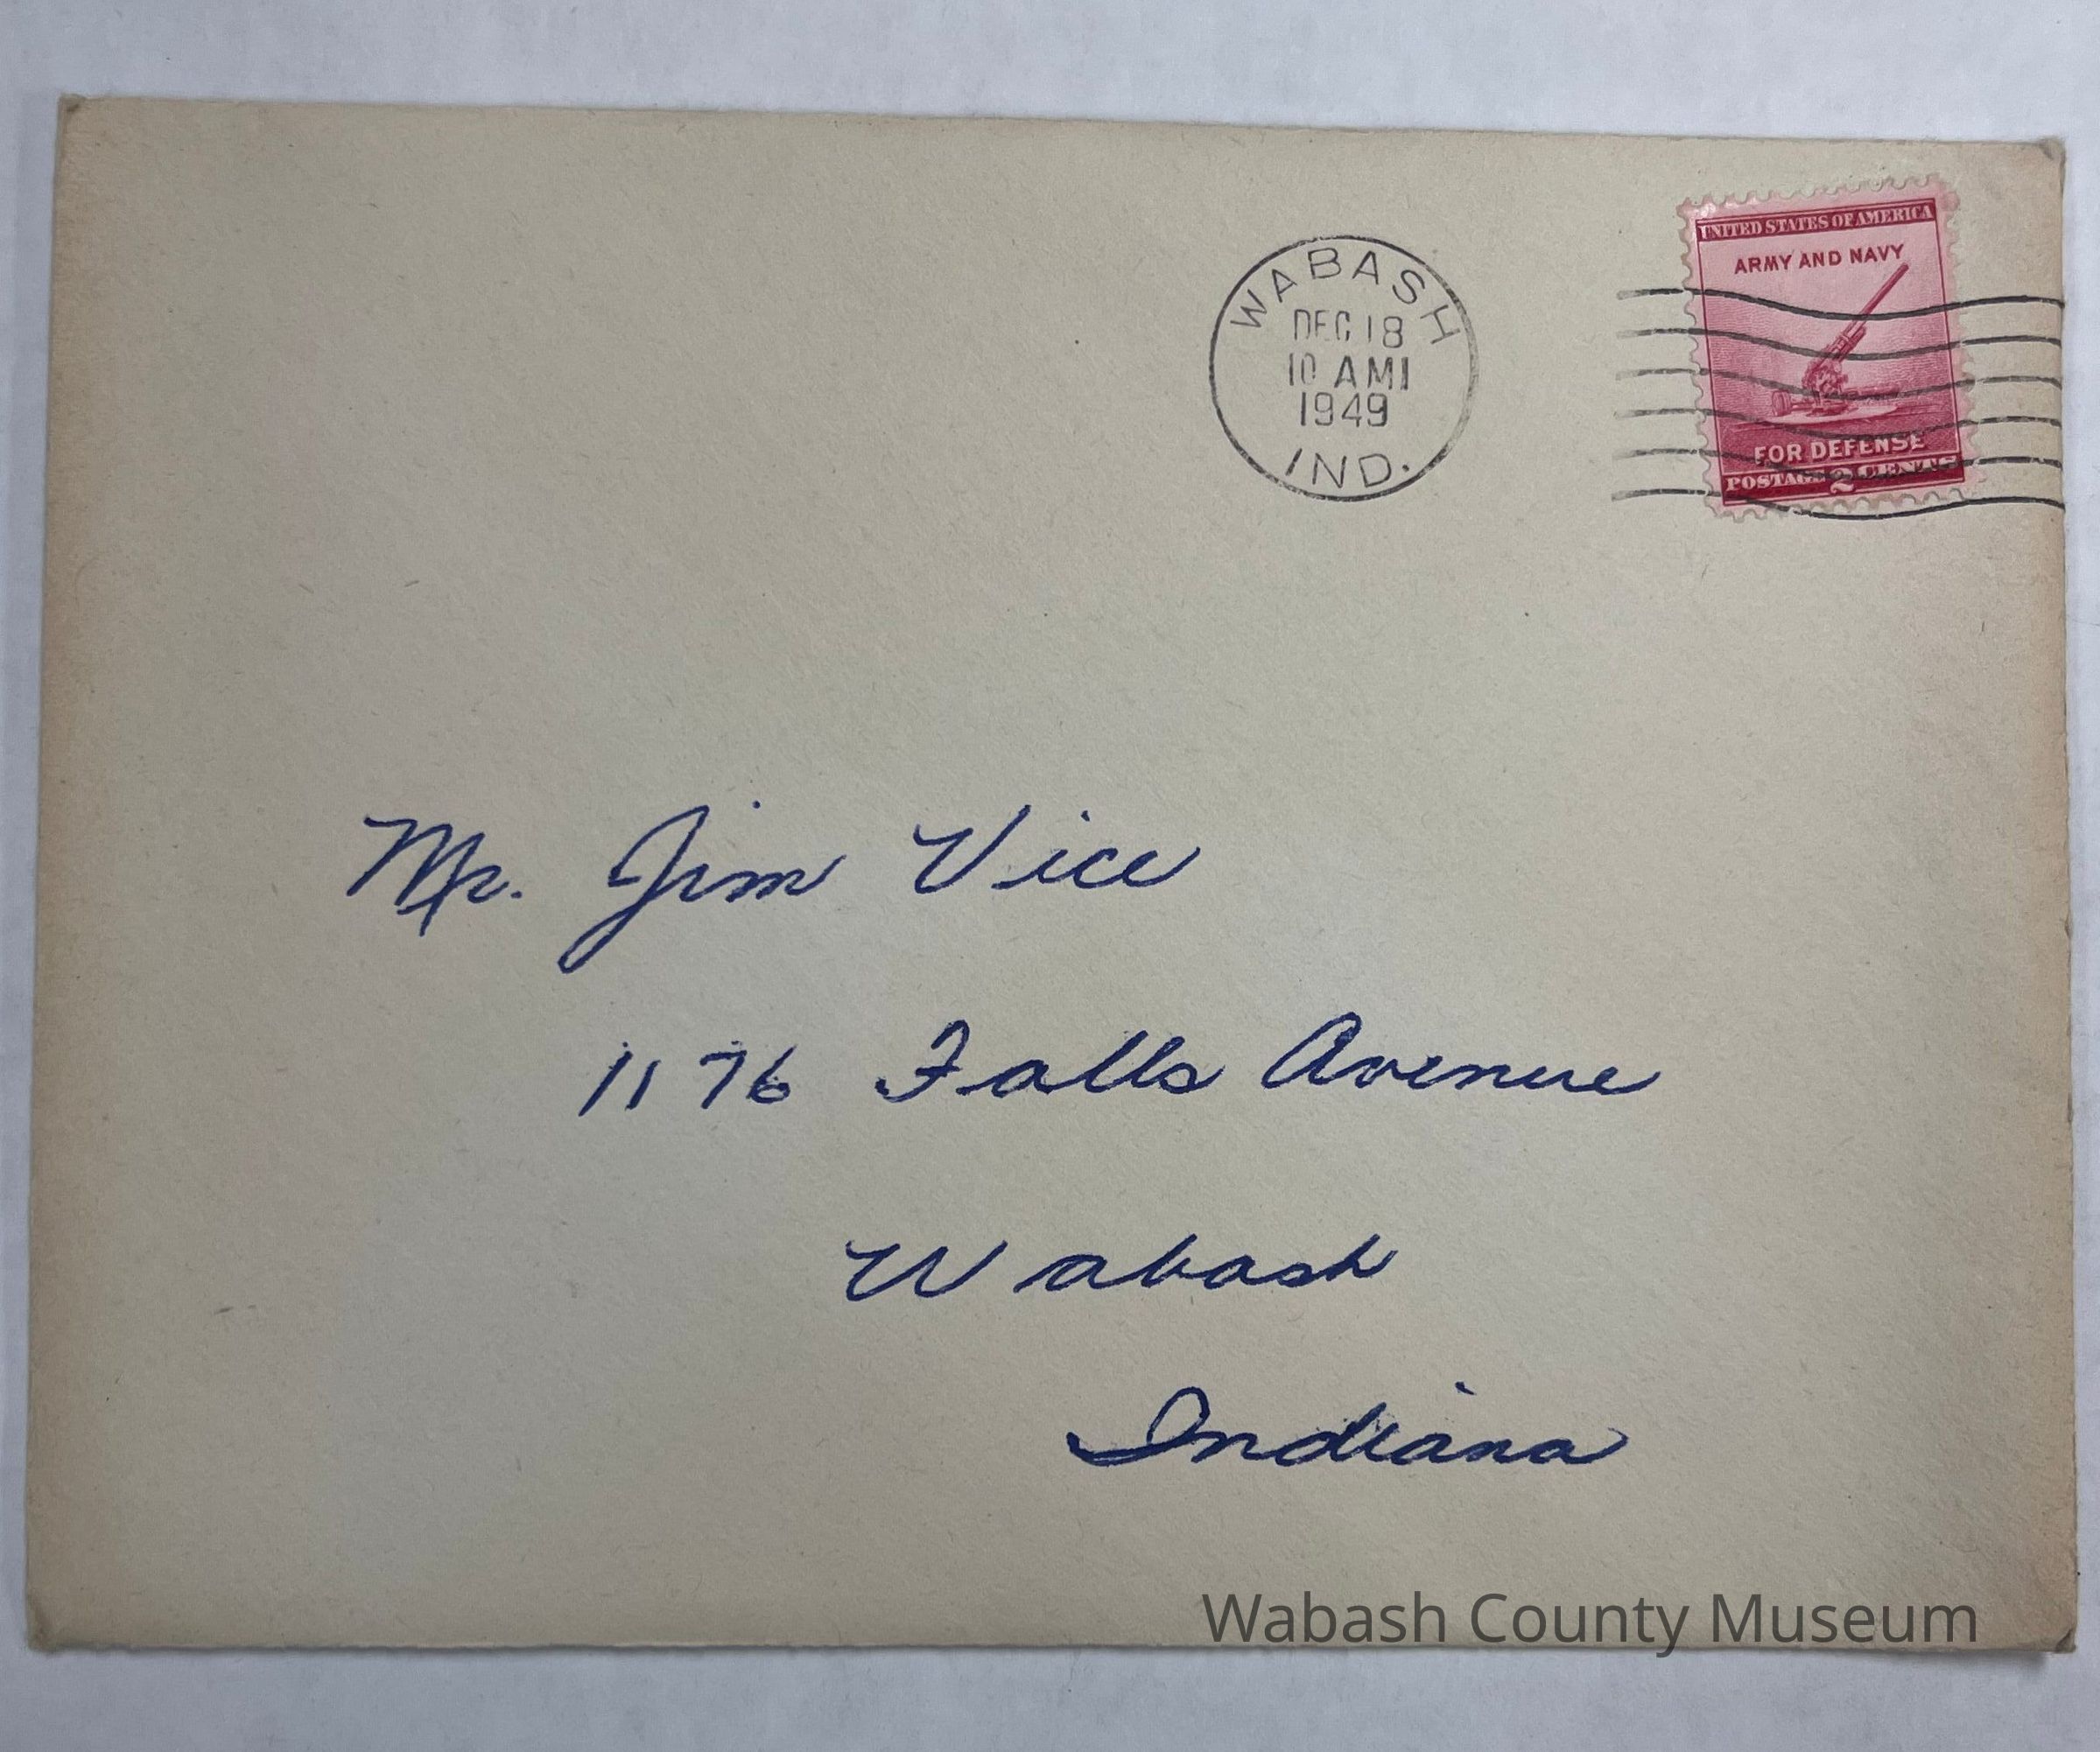 WABASH
DEC 18
10 AM
1949
IND.
UNITED STATES OF AMERICA
ARMY AND NAVY
FOR DEFENSE
POSTAGE 2 CENTS
Mr. Jim Vice
1176 Falls Avenue
Wabash
Indiana
Wabash County Museum